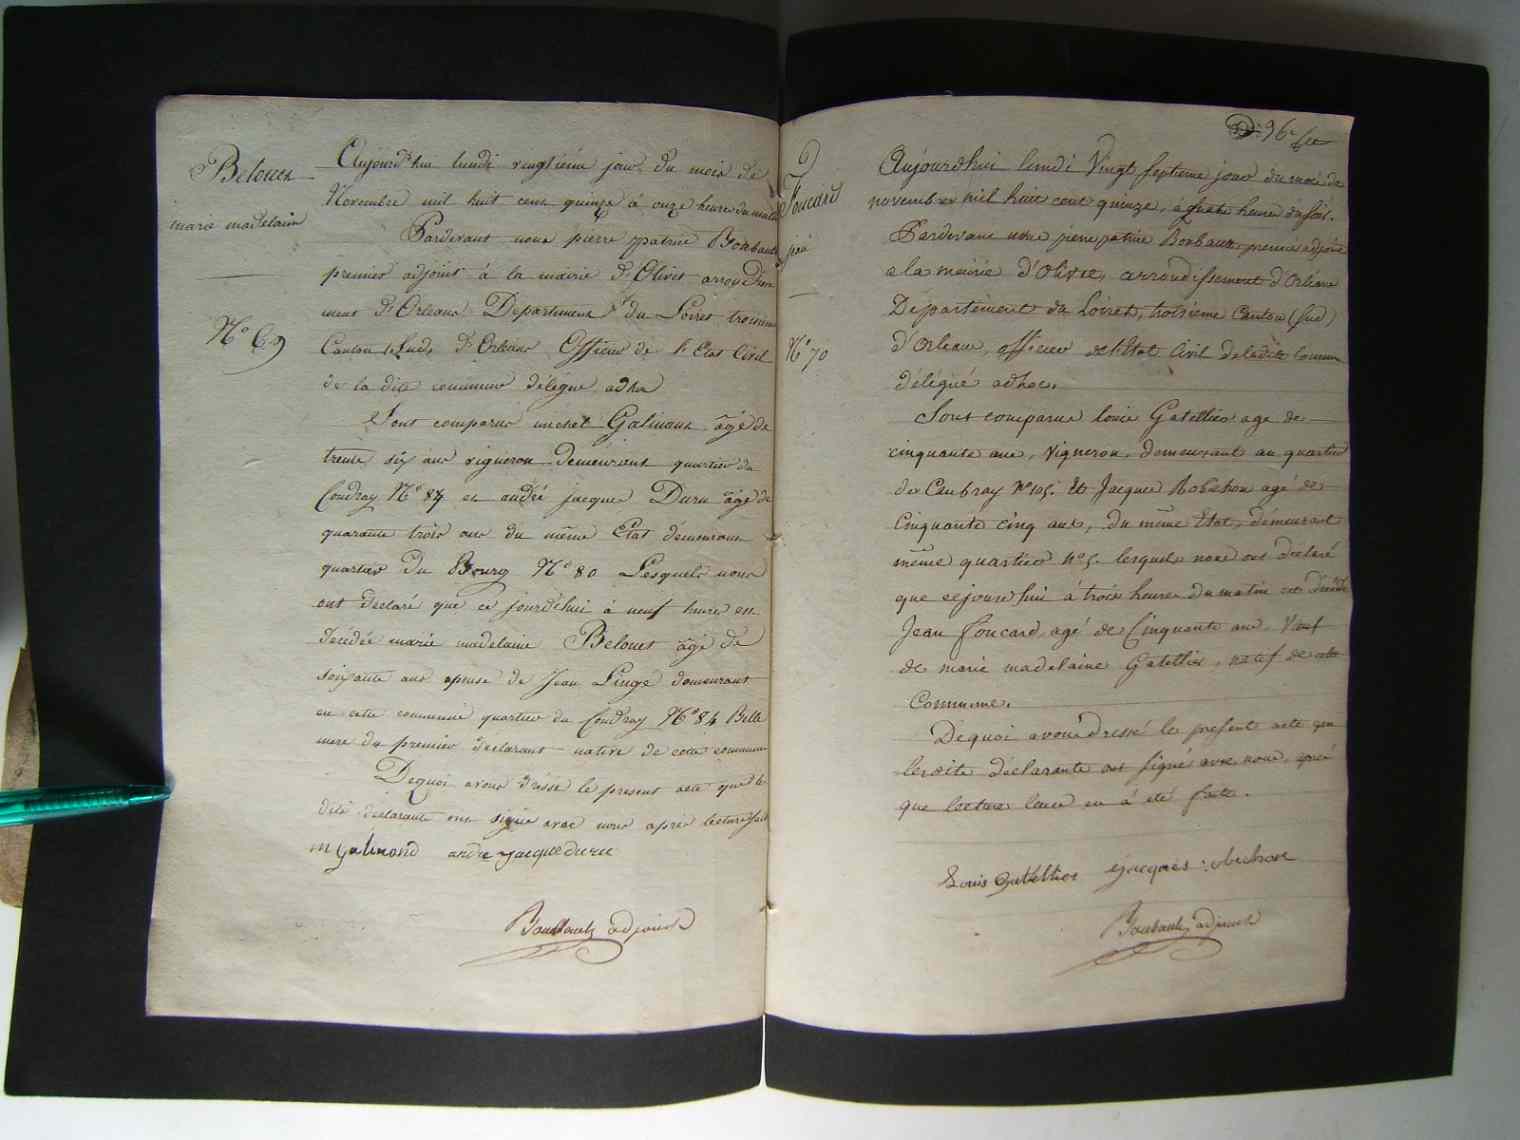 Belouet
marie madelaine
N° 69
Aujourd'hui lundi vingtième jour du mois de
Novembre mil huit cent quinze à onze heure du matin
Pardevant nous pierre patrice Boubault
premier adjoint à la mairie d'Olivet arrondisse
ment d'Orleans Departement du Loiret troisieme
Canton Sud d'Orleans Officier de l'Etat Civil
de la dite commune délégué adhoc
Sont comparus michel Galmond âgé de
trente six ans vigneron demeurant quartier du
Coudray N° 84 et andré jacque Duru âgé de
quarante trois ans du même Etat demeurant
quartier du Bourg N° 80 Lesquels nous
ont declaré que ce jourd'hui à neuf heure est
decédée marie madelaine Belouet âgé de
soixante ans epouse de Jean Linge demeurant
en cette commune quartier du Coudray N° 84 Belle
mere du premier declarant native de cette commune
Dequoi avons dressé le present acte que les
dits declarants ont signé avec nous après lecture fait
m galmond andre jacque duru
Boubault adjoint
96e
Foucard
jean
N° 70
Aujourdhui lundi Vingt septieme jour du mois de
novembre mil huit cent quinze, a quatre heure du soir.
Pardevant nous pierre patrice Boubault, premier adjoint
a la mairie d'Olivet, arrondissement d'Orléans
Département du Loiret, troisieme Canton (Sud)
d'Orleans, officier de l'Etat Civil de ladite Commune
délégué adhoc.
Sont comparus louis Gatellier agé de
cinquante ans, Vigneron, demeurant au quartier
de Caubray N° 105. Et Jacques Robichon agé de
Cinquante cinq ans, du même Etat, demeurant
même quartier N° 5. lesquels nous ont déclaré
que cejourdhui à trois heures du matin est décédé
Jean Foucard, agé de Cinquante ans Veuf
de marie madelaine Gatellier, natif de cette
Commune.
Dequoi avons dressé le présent acte que
lesdits déclarants ont signé avec nous, après
que lecture leur en à été faite.
Louis Gatellier Jacques
Boubault, adjoint